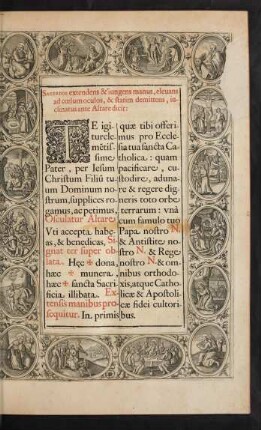 Sacerdos extendens & iungens manus, eleuans
ad cœlum oculos, & statim demittens, in-
clinatus ante Altare dicit:
TE igi-
tur cle-
mētis-
sime
Pater, per Iesum
Christum Filiū tu-
um Dominum no-
strum, supplices ro-
gamus, ac petimus,
Osculatur Altare,
Vti accepta habe-
as, & benedicas, Si-
gnat ter super ob-
lata. Hęc ✠ dona,
hæc ✠ munera,
hæc ✠ sancta Sacri-
ficia illibata. Ex-
tensis manibus pro-
sequitur. In primis
quæ tibi offeri-
mus pro Eccle-
sia tua sācta Ca-
tholica: quam
pacificare, cu-
stodire, aduna-
re & regere dig-
neris toto orbe
terrarum: vnà
cum famulo tuo
Papa nostro N.
& Antistite no-
stro N. & Rege
nostro N. & om-
nibus orthodo-
xis, atque Catho-
licæ & Apostoli-
cæ fidei cultori-
bus.